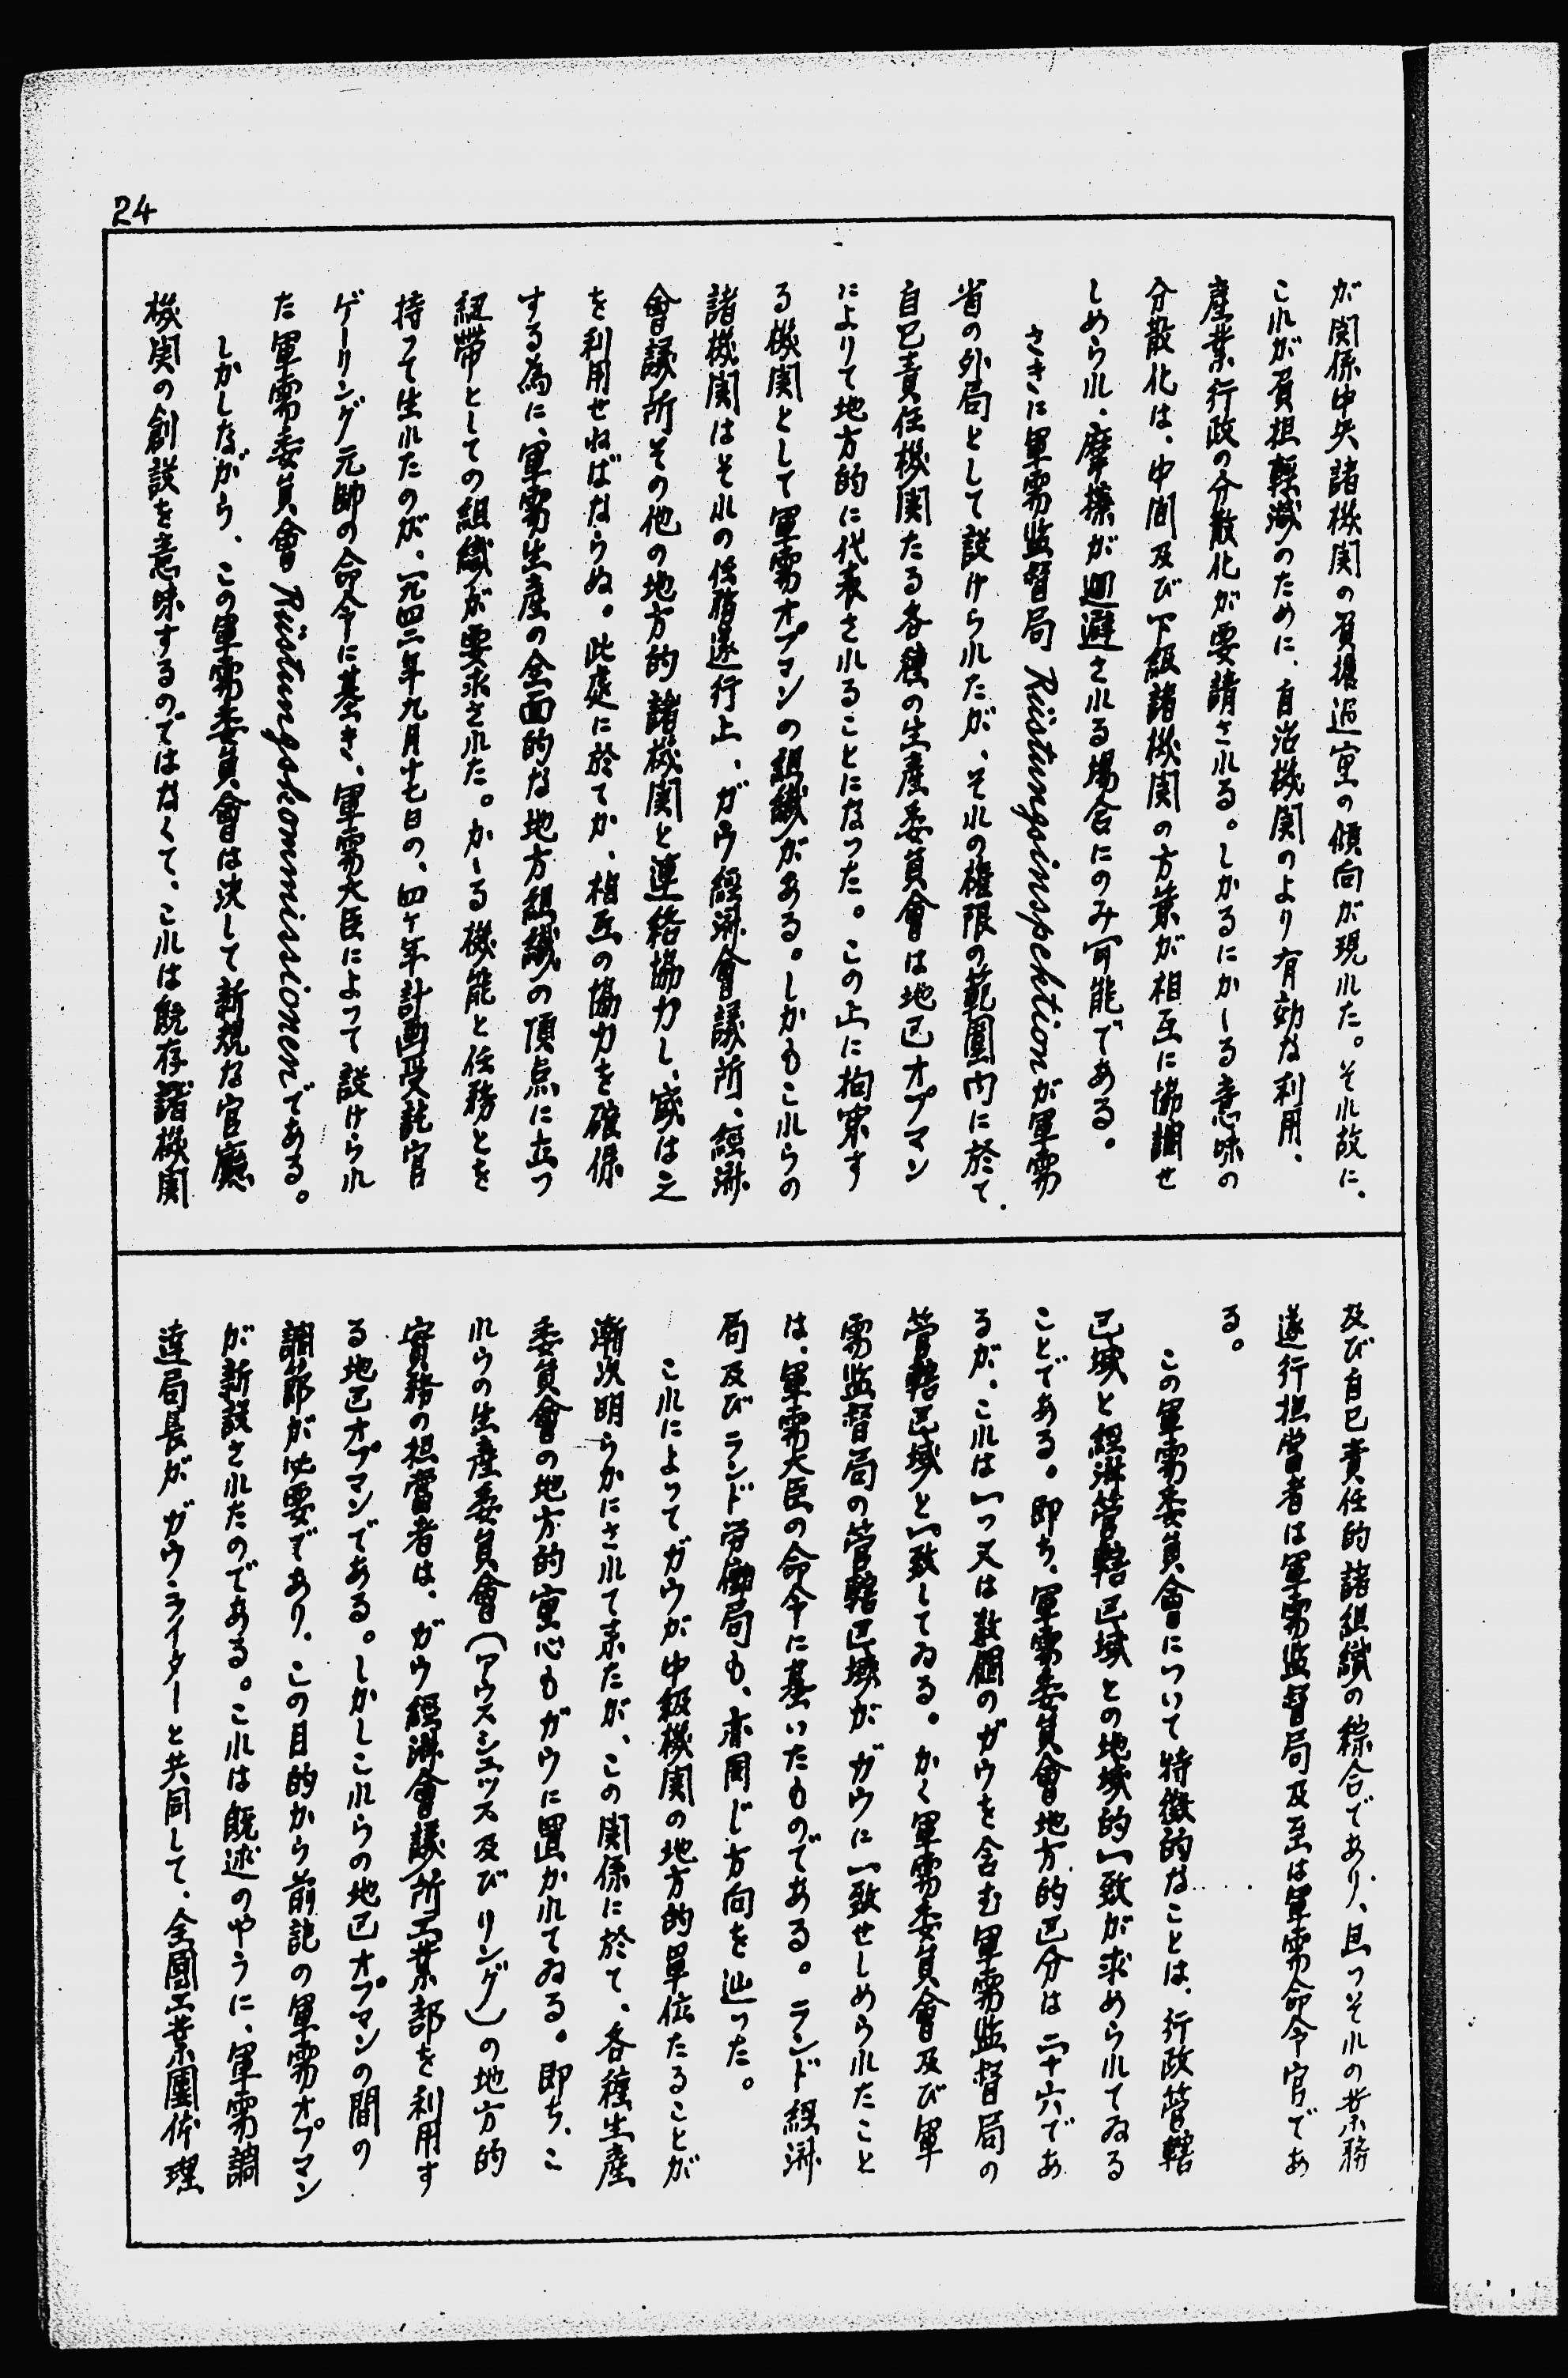 24
が関係中央諸機関の負擔過重の傾向が現れた。それ故に、
これが負担軽減のために、自治機関のより有効な利用、
産業行政の分散化が要請される。しかるにかゝる意味の
分散化は、中間及び下級諸機関の方策が相互に協調せ
しめられ、摩擦が廻避される場合にのみ可能である。
さきに軍需監督局 Rüstungsinspektionが軍需
省の外局として設けられたが、それの権限の範圍内に於て、
自己責任機関たる各種の生産委員會は地区オブマン
によりて地方的に代表されることになった。この上に拘束す
る機関として軍需オブマンの組織がある。しかもこれらの
諸機関はそれの任務遂行上、ガウ経済會議所、経済
會議所その他の地方的諸機関と連絡協力し、或は之
を利用せねばならぬ。此處に於てか、相互の協力を確保
する為に、軍需生産の全面的な地方組織の頂点に立つ
紐帯としての組織が要求された。かゝる機能と任務とを
持って生れたのが、一九四二年九月十七日の、四ヶ年計画受託官
ゲーリング元帥の命令に基き、軍需大臣によって設けられ
た軍需委員會 Rüstungskommissionenである。
しかしながら、この軍需委員會は決して新規な官廳
機関の創設を意味するのではなくて、これは既存諸機関
及び自己責任的諸組織の綜合であり、且つそれの業務
遂行担當者は軍需監督局及至は軍需命令官であ
る。
この軍需委員會について特徴的なことは、行政管轄
区域と経済管轄区域との地域的一致が求められてゐる
ことである。即ち、軍需委員會地方的区分は二十六であ
るが、これは一つ又は数個のガウを含む軍需監督局の
管轄区域と一致してゐる。かく軍需委員會及び軍
需監督局の管轄区域がガウに一致せしめられたこと
は、軍需大臣の命令に基いたものである。ランド経済
局及びランド労働局も、亦同じ方向を辿った。
これによってガウが中級機関の地方的單位たることが
漸次明らかにされて来たが、この関係に於て、各種生産
委員會の地方的重心もガウに置かれてゐる。即ち、こ
れらの生産委員會（アウスシュッス及びリング）の地方的
實務の担當者は、ガウ経済會議所工業部を利用す
る地区オブマンである。しかしこれらの地区オブマンの間の
調節が必要であり、この目的から前記の軍需オブマン
が新設されたのである。これは既述のやうに、軍需調
達局長がガウライターと共同して、全國工業團体理